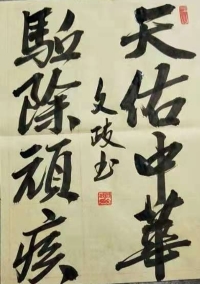 天佑中華
驅除頑疾
文政书